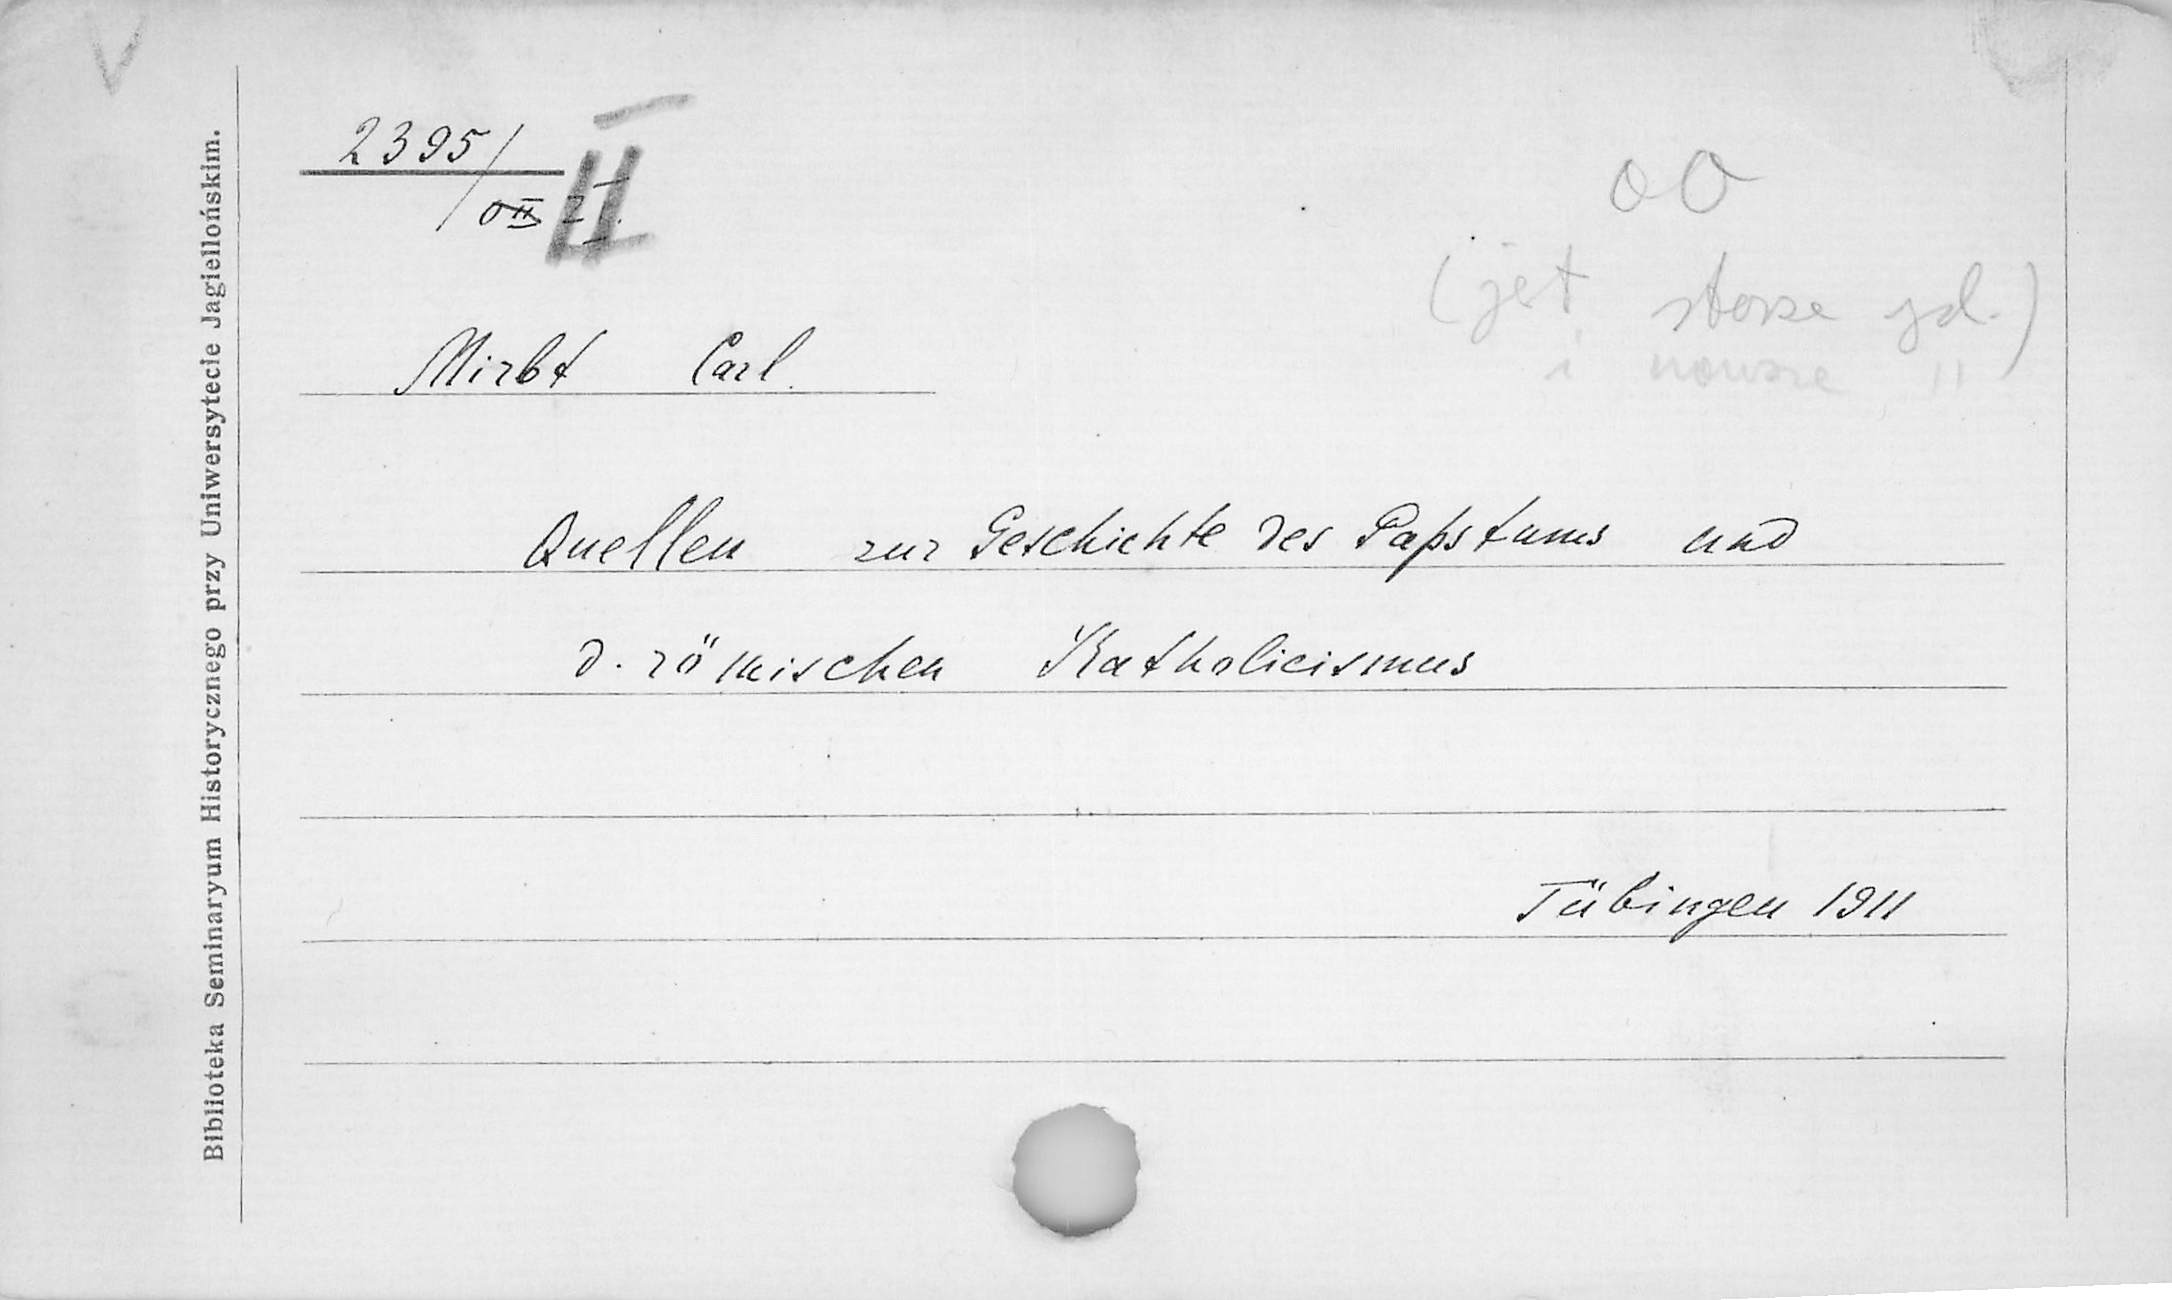 V
2395/
II
oo
(jest starsze yd.)
i nowsze "
Mirbt Carl.
Quellen zur Geschichte des Papstums und
d. römischen Katholicismus
Tübingen 1911
Biblioteka Seminaryum Historycznego przy Uniwersytecie Jagiellońskim.